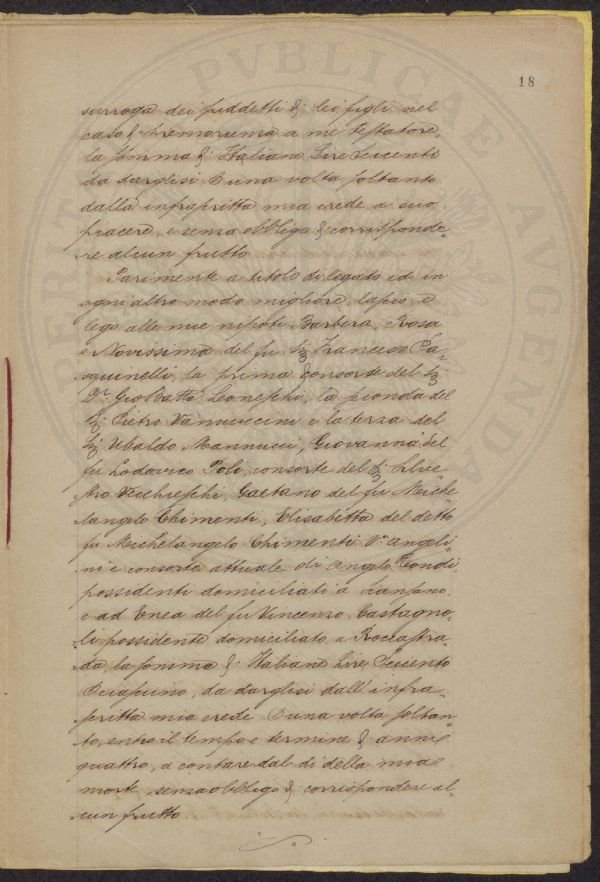 18
surroga dei suddetti di lei figli nel
caso di premorienza a me testatore,
la somma di Italiane Lire Seicento
da darglisi una volta soltanto
dalla infrascritta mia erede a suo
piacere, e senza obbligo di corrisponde-
re alcun frutto
Parimente a titolo di legato ed in
ogni altro modo migliore, lascio, e
lego alle mie nipoti Barbera, Rosa
e Novissima del fu Sig. Francesco Pa-
squinelli, la prima consorte del Sig.
Dr. Gio Batta Leoneschi, la seconda del
Sig. Pietro Vannuccini e la terza del
Sig. Ubaldo Mannucci, Giovanna del
fu Lodovico Poli, consorte del Sig. Silve
stro Vecchieschi, Gaetano del fu Miche
langelo Chimenti, Elisabetta del detto
fu Michelangelo Chimenti Va. Angeli-
ni e consorte attuale di Angelo
possidenti domiciliati a
e ad Enea del fu Vincenzo Castagno-
li possidente domiciliato a Roccastra-
da, la somma di Italiane Lire Seicento
Ciascuno, da darglisi dall' infra-
scritta mia erede una volta soltan-
to, entro il tempo e termine di anni
quattro, a contare dal dì della mia
morte senza obbligo di corrispondere al-
cun frutto.
PVBLICAE
AVGENDAE